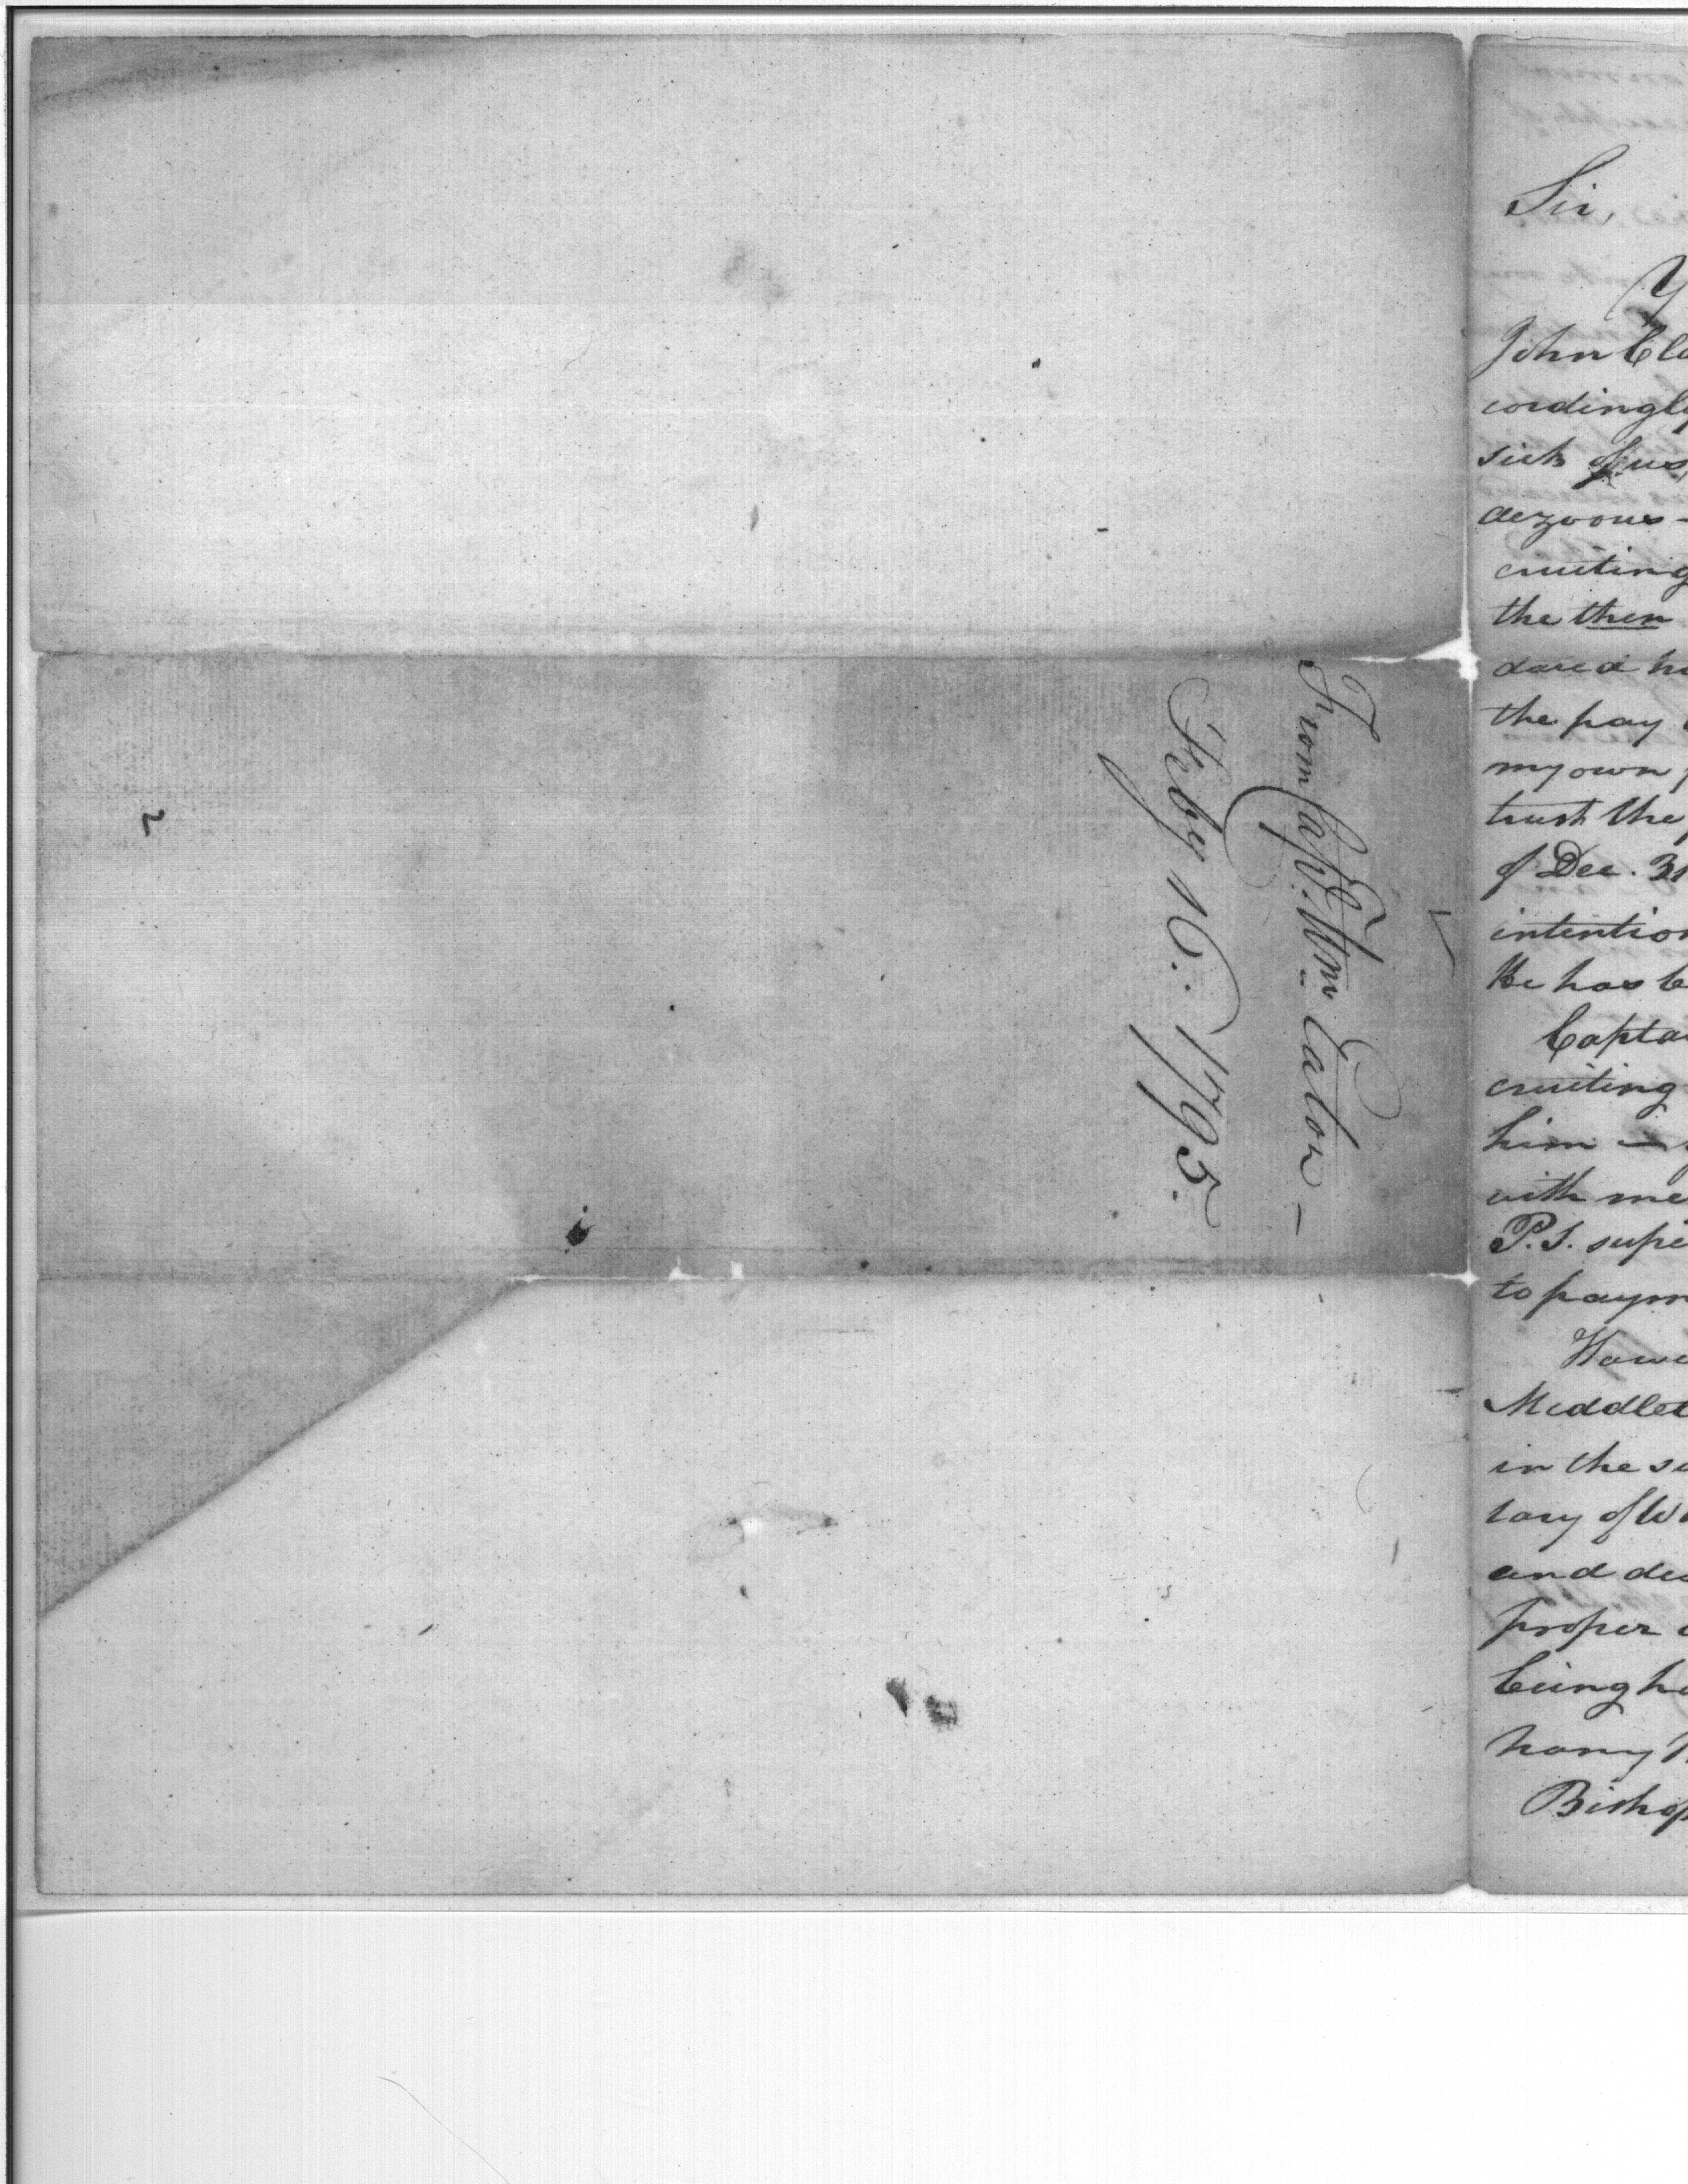 From Capt. Wm. Eaton –
Feby 16. 1795.
2
Sir,
Y
John Cla
cordingly
sick of us
dezvous –
cruiting
the then
the pay
my own
trust the
of Dec. 31
intention
He has b
Capta
cruiting
him
with me
P.S. supe
to paym
Howe
Middlet
in the se
tary of Wa
and des
proper
being h
Bishop